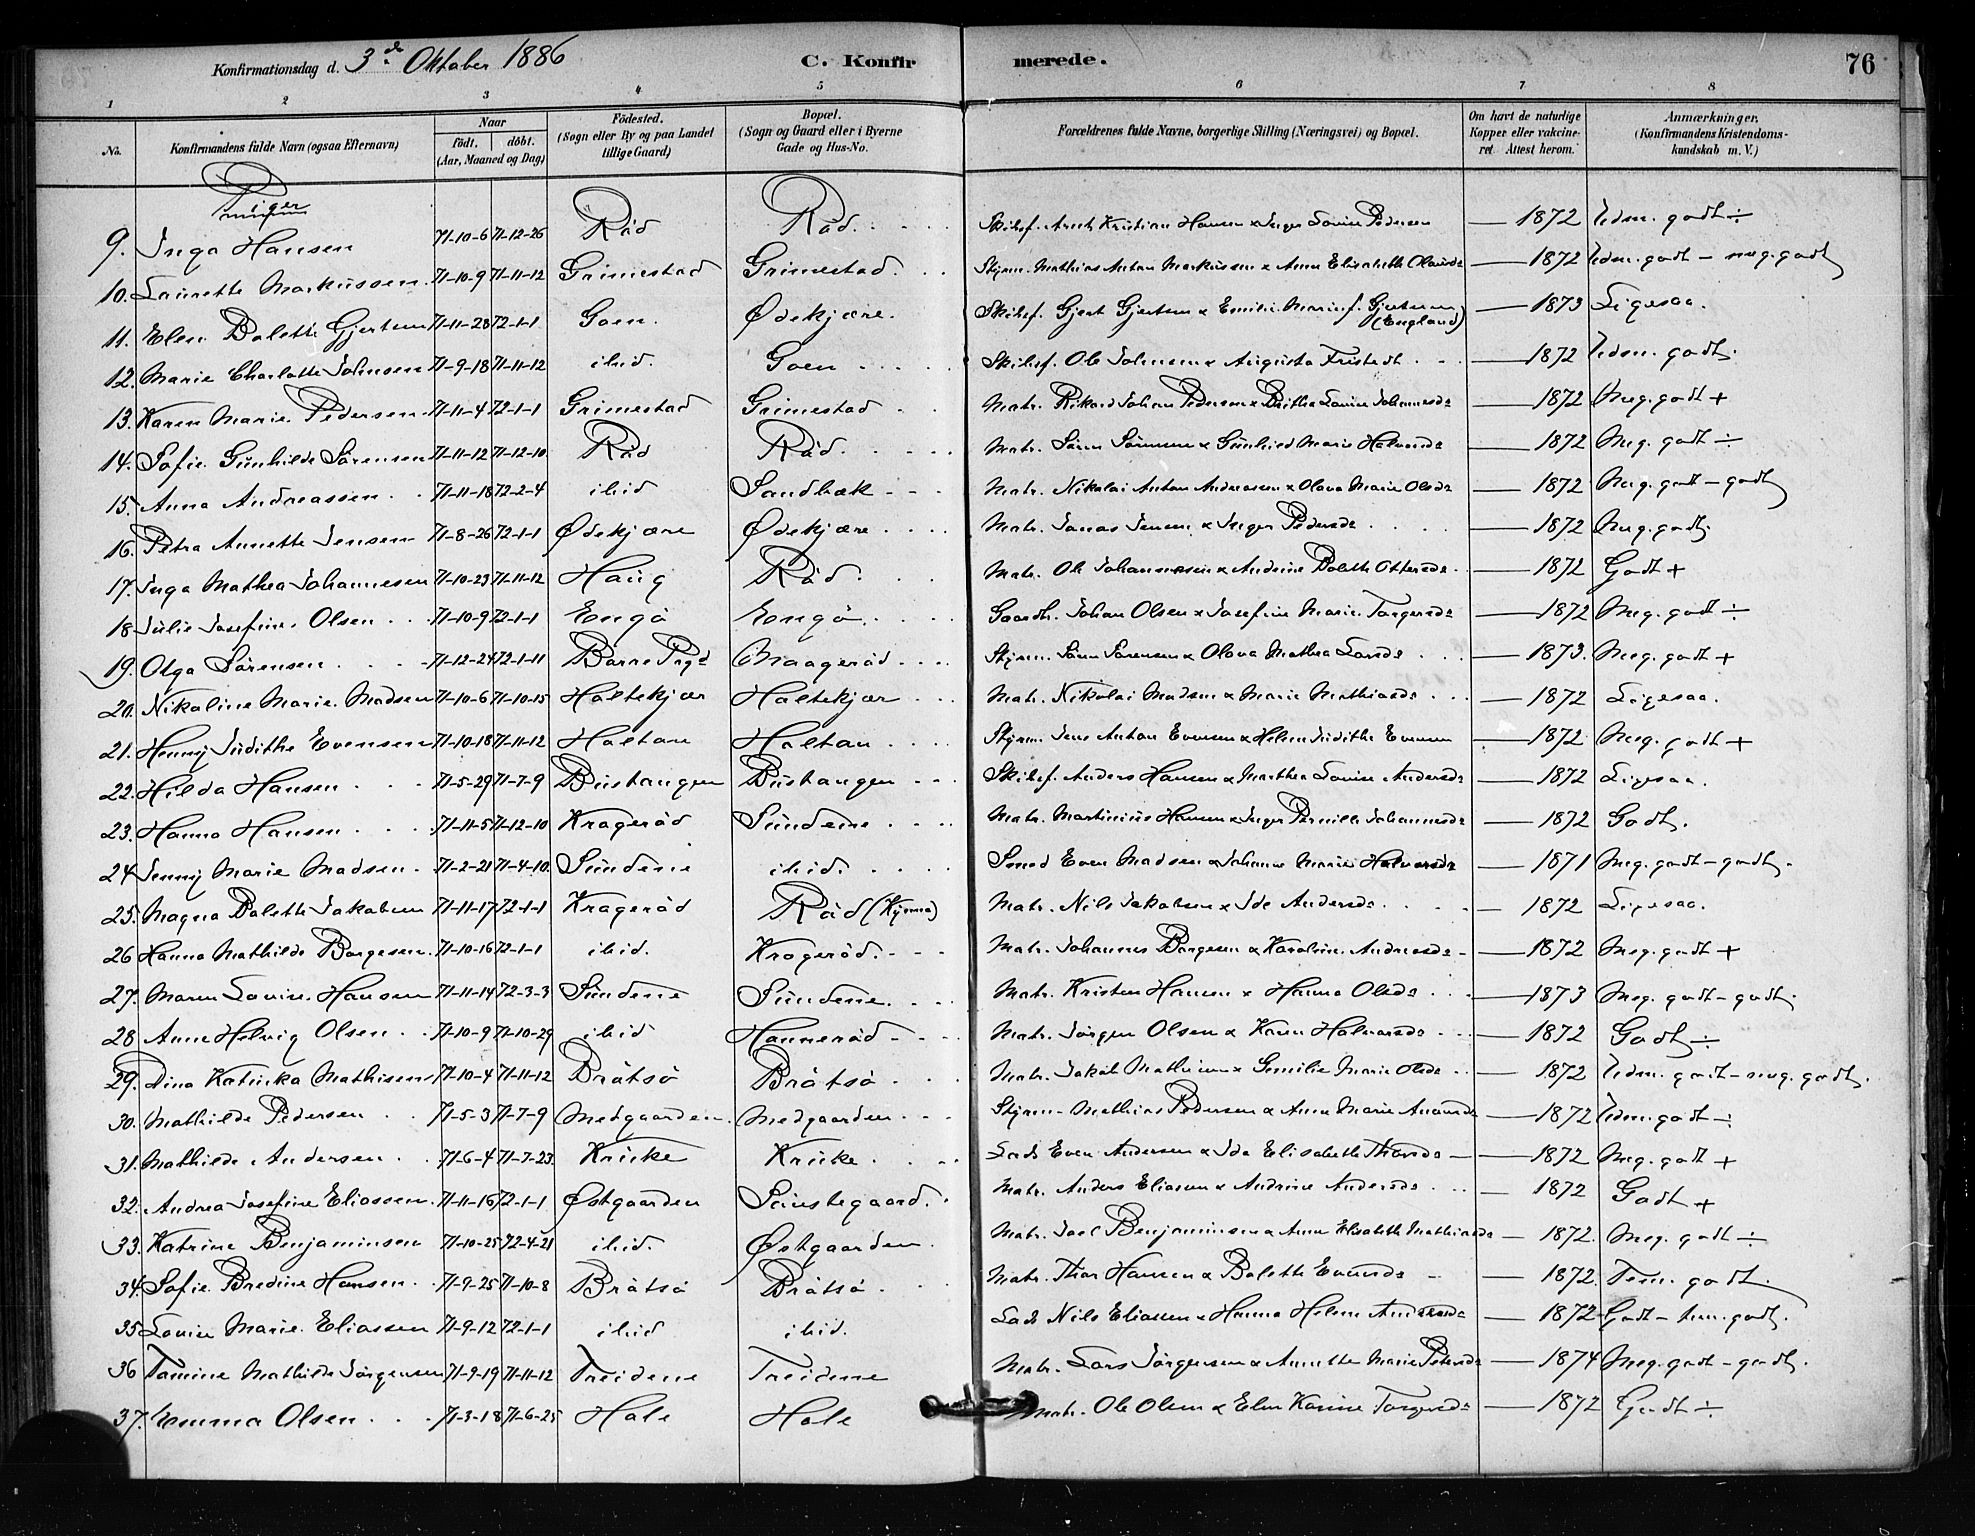 Konfirmationsdag d. 3de Oktober 1886 C. Konfirmerede. 76
1 2 3 4 5 6 7 8
No. Konfirmandens fulde Navn (ogsaa Efternavn) Naar født, døbt. (Aar, Maaned og Dag) Fødested. (Sogn eller By og paa Landet tillige Gaard) Bopæl. (Sogn og Gaard eller i Byerne Gade og Hus-No. Forældrenes fulde Navne, borgerlige Stilling (Næringsvei) og Bopæl. Om havt de naturlige Kopper eller vakcineret. Attest herom. Anmærkninger. (Konfirmandens Kristendomskundskab m. V.)
Piger
9. Inga Hansen 71-10-6 71-12-26 Råd Råd. Skibsf. Arent Kristian Hansen & Inger Lovise Pedersen — 1872 Udm. godt ÷
10. Laurette Markussen 71-10-9 71-11-12 Grimestad Grimestad. Styrm. Mathias Anton Markussen & Anne Elisabeth Olausd. — 1872 Udm. godt - meg. godt
11. Elen Bolette Gjertsen 71-11-28 72-1-1 Goen. Ødekjære. Skibsf. Gjert Gjertsen & Emilie Marie f. Gjertsen (England) — 1873 Ligesaa.
12. Marie Charlotte Johnsen 71-9-18 71-11-12 ibid. Goen Skibsf. Ole Johnsen & Augusta Fristedt — 1872 Udm. godt.
13. Karen Marie Pedersen 71-11-4 72-1-1 Grimestad Grimestad Matr. Rikard Johan Pedersen & Britha Lovise Johannesd. — 1872 Meg. godt +
14. Sofie Gunhilde Sørensen 71-11-12 71-12-10 Råd Råd. Matr. Søren Sørensen & Gunhild Marie Halvorsd. — 1872 Meg. godt ÷
15. Anna Andreassen 71-11-18 72-2-4 ibid Sandbæk Matr. Nikolai Anton Andreasen & Olava Marie Olsd. — 1872 Meg. godt - godt
16. Petra Annette Jensen 71-8-26 72-1-1 Ødekjære Ødekjære Matr. Jonas Jensen & Inger Pedersd. — 1872 Meg. godt.
17. Inga Mathea Johannesen 71-10-23 71-11-12 Haug Råd. Matr. Ole Johannesen & Andrine Bolette Ottersd. — 1872 Godt +
18 Julie Josefine Olsen 71-10-9 72-1-1 Engø Engø. Gaardbr. Johan Olsen & Josefine Marie Torgersd. — 1872 Meg. godt ÷
19. Olga Sørensen 71-12-24 72-1-11 Borre Prgd Maagerød Styrm. Søren Sørensen & Olava Mathea Larsd. — 1873. Meg. godt +
20. Nikoline Marie Madsen 71-10-6 71-10-15 Holtekjær Holtekjær Matr. Nikolai Madsen & Marie Mathiasd. — 1872 Ligesaa.
21. Henny Judithe Evensen 71-10-18 71-11-12 Holtan Holtan Styrm. Jens Anton Evensen & Helene Judithe Evensen — 1872 Meg. godt +
22. Hilda Hansen 71-5-29 71-7-9 Bustangen Bustangen Skibsf. Anders Hansen & Mathea Lovise Andersd. — 1872 Ligesaa.
23. Hanna Hansen 71-11-5 71-12-10 Kragerød Sundene Matr. Martinius Hansen & Inger Pernille Johannesd. — 1872 Godt.
24 Jenny Marie Madsen 71-2-21 71-4-10. Sundene ibid. Smed Even Madsen & Johanne Marie Halvorsd. — 1871 Meg. godt - godt.
25. Magna Bolette Jakobsen 71-11-17 72-1-1 Kragerød Råd (Kjønnø) Matr. Nils Jakobsen & Ide Andersd. — 1872 Ligesaa.
26 Hanna Mathilde Borgesen 71-10-16 72-1-1 ibid. Kragerød. Matr. Johannes Borgesen & Karoline Andreasd. — 1872 Meg. godt +
27. Maren Lovise Hansen 71-11-14 72-3-3 Sundene Sundene. Matr. Kristen Hansen & Hanna Olsd. — 1873 Meg. godt - godt.
28 Anne Helvig Olsen 71-10-9 71-10-29 ibid Hannerød Matr. Jørgen Olsen & Karen Halvorsd. — 1872 Godt ÷
29. Dina Katinka Mathisen 71-10-4 71-11-12 Bråtsø Bråtsø Matr. Jakob Mathisen & Emilie Marie Olsd. — 1872 Udm. godt - meg. godt.
30. Mathilde Pedersen 71-5-3 71-7-9 Medgaarden. Medgaarden Styrm. Mathias Pedersen & Anne Marie — 1872 Udm. godt ÷
31. Mathilde Andersen 71-6-4 71-7-23 Kruke Kruke Lods Even Andersen & Ide Elisabeth Thorsd. — 1872 Meg. godt +
32. Andrea Josefine Eliassen 71-11-16 72-1-1 Østgaarden Matr. Anders Eliasen & Andrine Andersd. — 1872 Godt +
33. Katrine Benjaminsen 71-10-25 72-4-21 ibid. Østgaarden Matr. Joel Benjaminsen & Anne Elisabeth Mathiasd. — 1872. Meg. godt ÷
34. Sofie Bredine Hansen 71-9-25 71-10-8 Bråtsø Bråtsø. Matr. Thor Hansen & Bolette Evensd. — 1872. Tem. godt.
35 Lovise Marie Eliassen 71-9-12 72-1-1 ibid ibid. Lods Nils Eliassen & Hanna Helene Andersd. — 1872 Godt - tem. godt.
36 Tomine Mathilde Jørgensen 71-9-19 71-11-12 Treidene Treidene Matr. Lars Jørgensen & Annette Marie Petersd. — 1874 Meg. godt - godt.
37. Emma Olsen 71-3-18 71-6-25 Hole Hole Matr. Ole Olsen & Elen Karine Torgersd. — 1872 Godt ÷